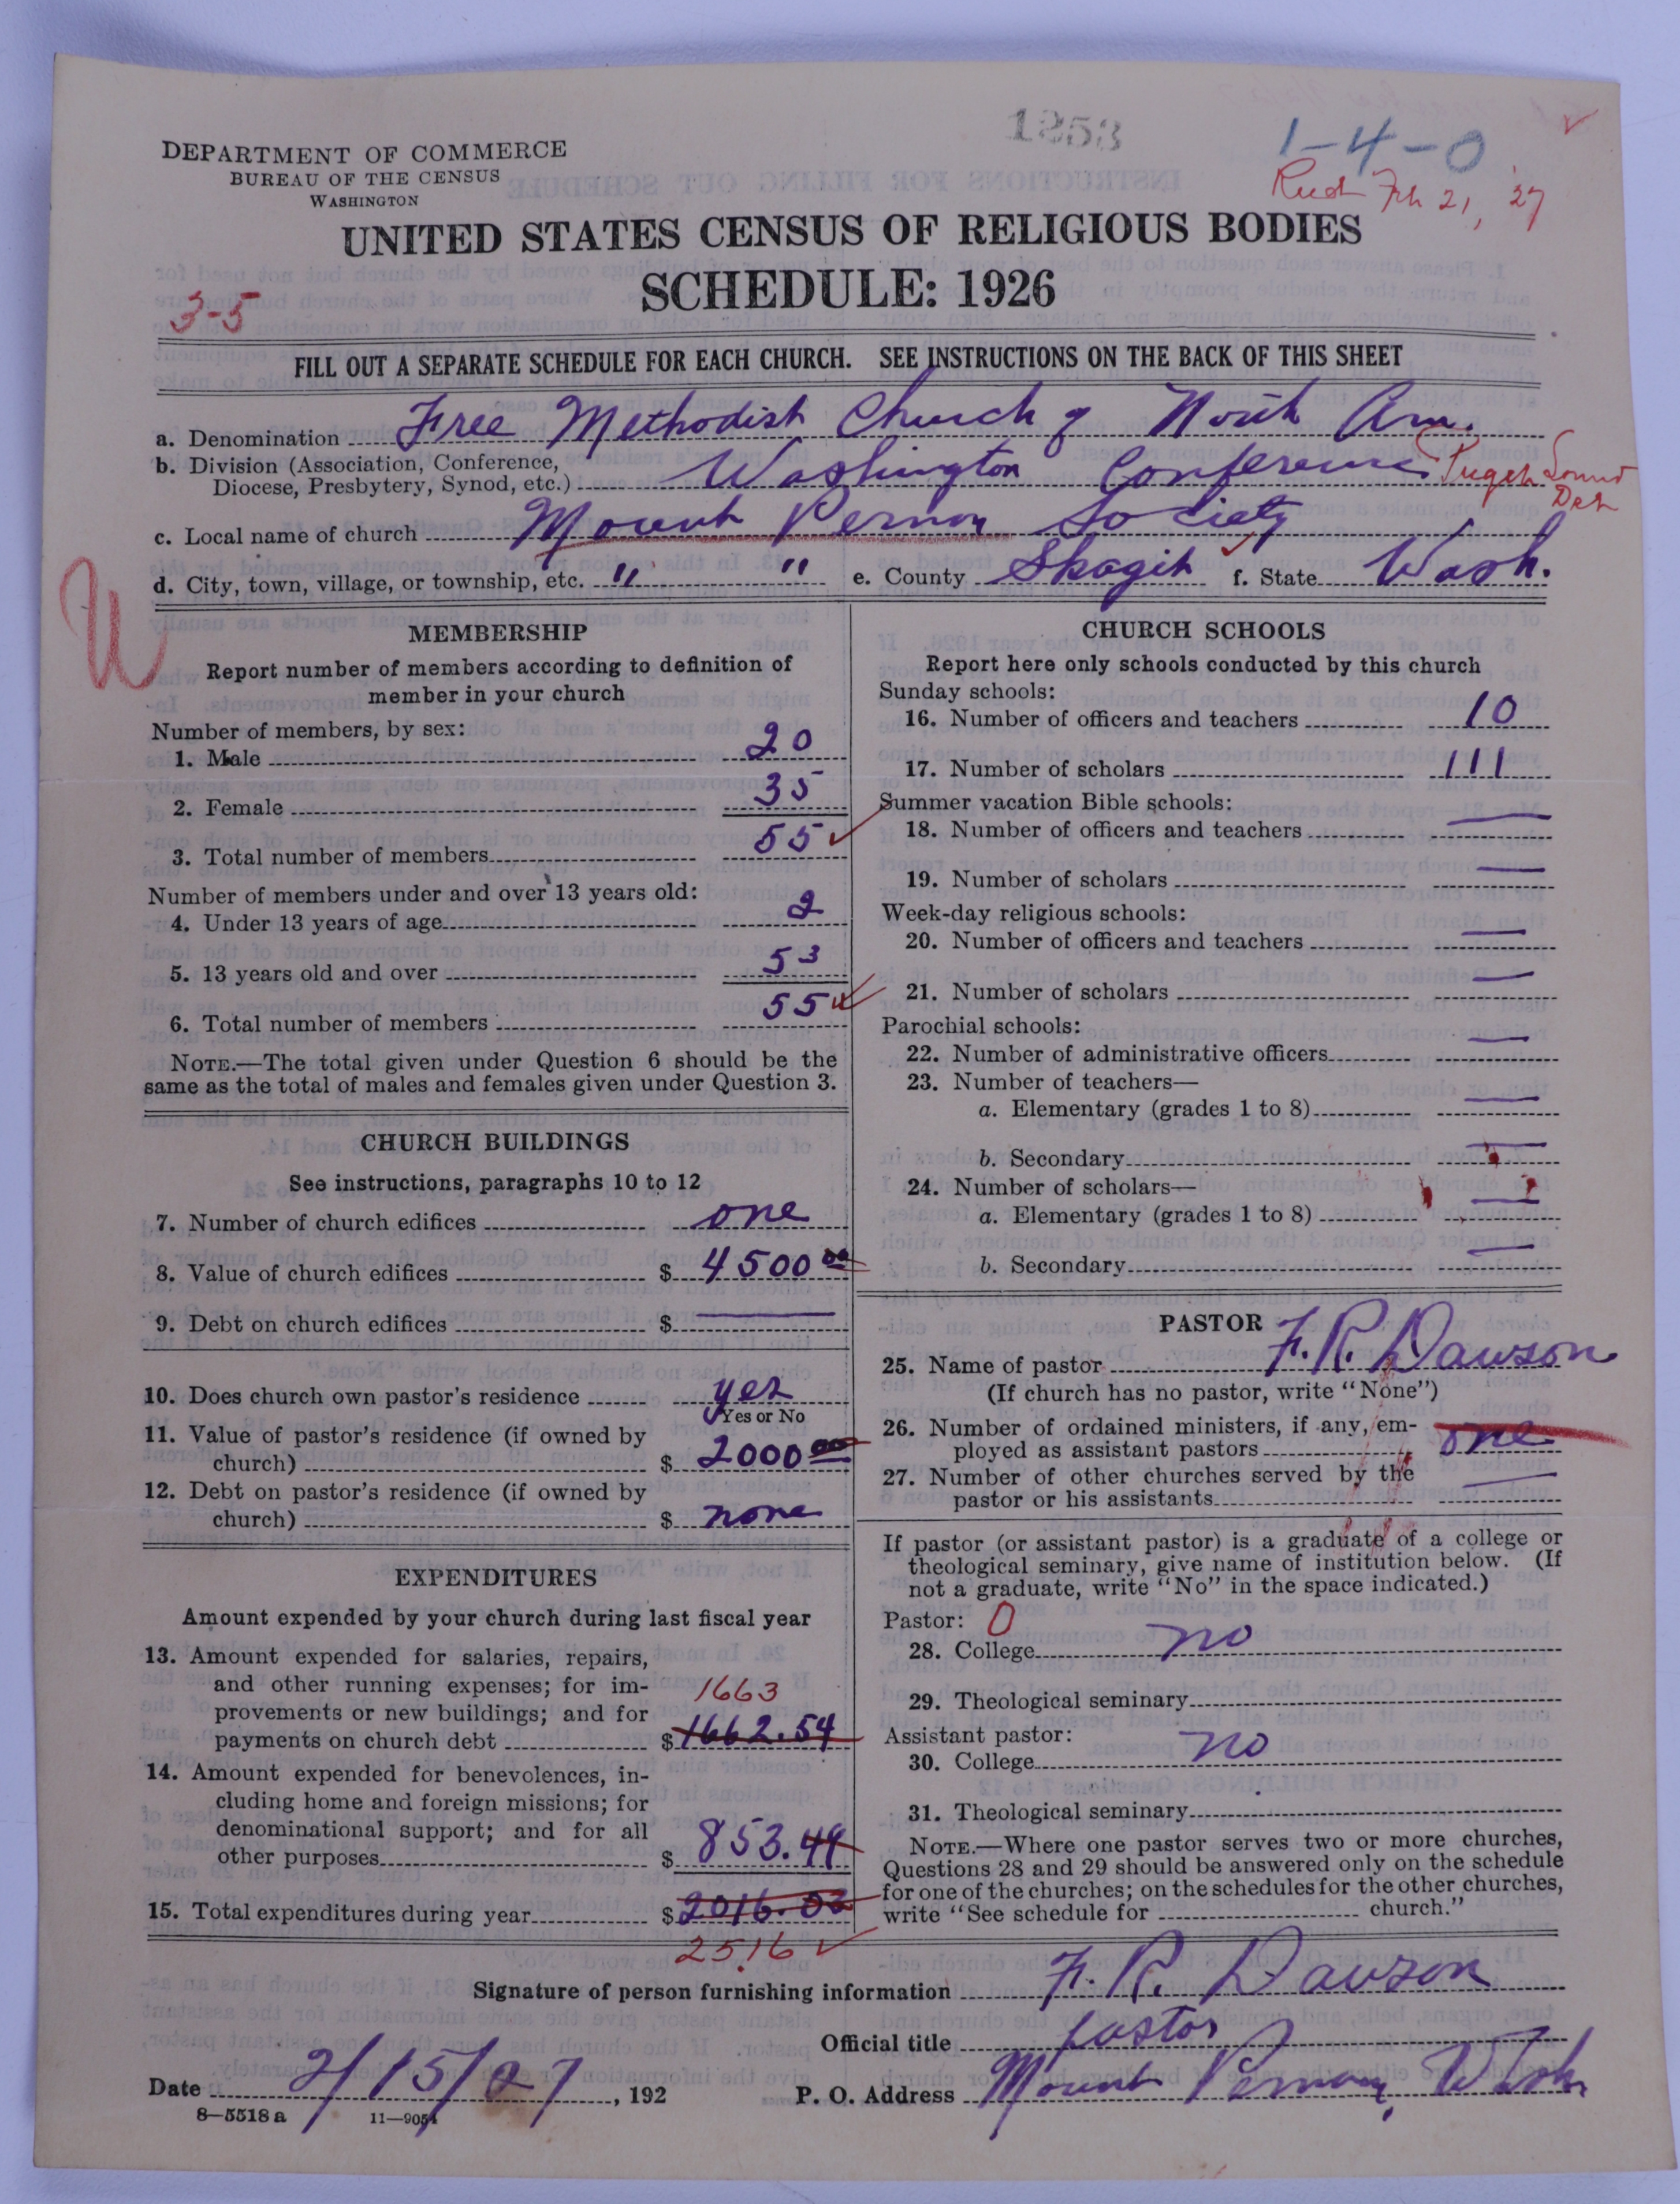 1253
1-4-0
Feb 21, '27
DEPARTMENT OF COMMERCE
BUREAU OF THE CENSUS
WASHINGTON
UNITED STATES CENSUS OF RELIGIOUS BODIES
SCHEDULE: 1926
3-5
FILL OUT A SEPARATE SCHEDULE FOR EACH CHURCH. SEE INSTRUCTIONS ON THE BACK OF THIS SHEET
a. Denomination Free Methodist Church of North Am.
b. Division (Association, Conference,
Diocese, Presbytery, Synod, etc.) Washington Conference Puget Sound
c. Local name of church Mount Vernon Society
d. City, town, village, or township, etc. " " e. County Skagit f. State Wash.
W
MEMBERSHIP
Report number of members according to definition of
member in your church
Number of members, by sex:
1. Male 20
2. Female 35
3. Total number of members 55
Number of members under and over 13 years old:
4. Under 13 years of age 2
5. 13 years old and over 53
6. Total number of members 55
NOTE.—The total given under Question 6 should be the
same as the total of males and females given under Question 3.
CHURCH BUILDINGS
See instructions, paragraphs 10 to 12
7. Number of church edifices one
8. Value of church edifices $ 4500 00
9. Debt on church edifices $ —
10. Does church own pastor's residence yes
Yes or No
11. Value of pastor's residence (if owned by
church) $ 2000 00
12. Debt on pastor's residence (if owned by
church) $ none
EXPENDITURES
Amount expended by your church during last fiscal year
13. Amount expended for salaries, repairs,
and other running expenses; for im-
provements or new buildings; and for
1663
payments on church debt $ 1662.54
14. Amount expended for benevolences, in-
cluding home and foreign missions; for
denominational support; and for all
other purposes $ 853.49
15. Total expenditures during year $ 2016.03
2516
CHURCH SCHOOLS
Report here only schools conducted by this church
Sunday schools:
16. Number of officers and teachers 10
17. Number of scholars 111
Summer vacation Bible schools:
18. Number of officers and teachers —
19. Number of scholars —
Week-day religious schools:
20. Number of officers and teachers —
21. Number of scholars —
Parochial schools:
22. Number of administrative officers —
23. Number of teachers—
a. Elementary (grades 1 to 8) —
b. Secondary —
24. Number of scholars—
a. Elementary (grades 1 to 8) —
b. Secondary —
PASTOR
25. Name of pastor F. R. Dawson
(If church has no pastor, write "None")
26. Number of ordained ministers, if any, em-
ployed as assistant pastors one
27. Number of other churches served by the
pastor or his assistants —
If pastor (or assistant pastor) is a graduate of a college or
theological seminary, give name of institution below. (If
not a graduate, write "No" in the space indicated.)
Pastor: 0
28. College no
29. Theological seminary
Assistant pastor:
30. College no
31. Theological seminary
NOTE.—Where one pastor serves two or more churches,
Questions 28 and 29 should be answered only on the schedule
for one of the churches; on the schedules for the other churches,
write "See schedule for church."
Signature of person furnishing information F. R. Dawson
Official title pastor
Date 2/15/27, 192 P. O. Address Mount Vernon, Wash
8—5518 a 11—9051